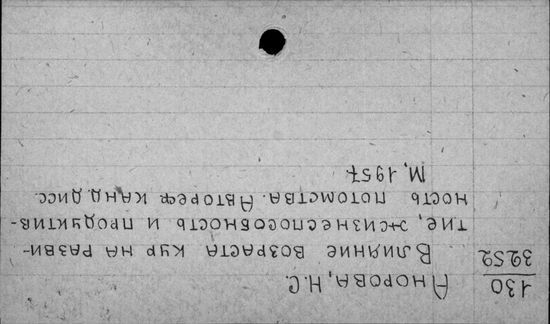 130
39252
Анорова, Н.С.
Влияние возраста кур на разви-
тие, жизнеспособность и продуктив-
ность потомства. Автореф. канд. дисс.
М, 1957.